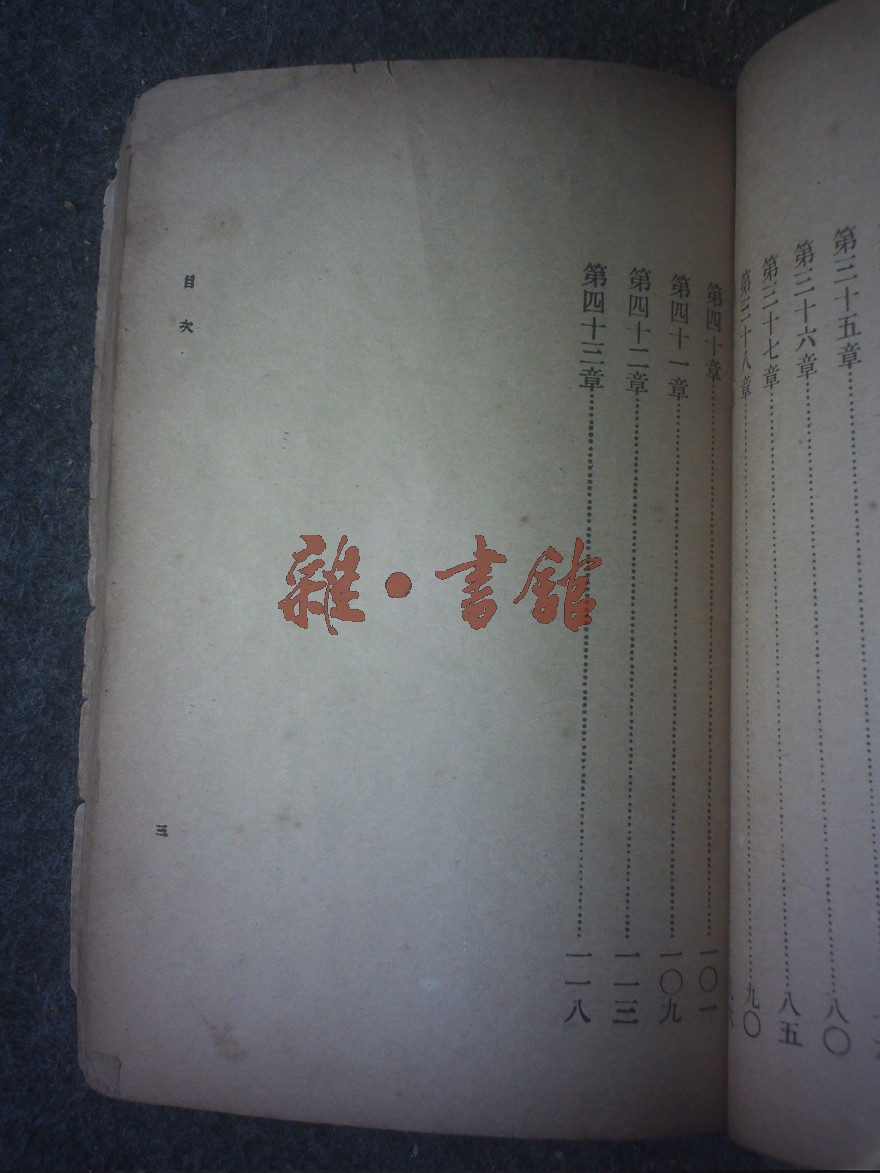 第三十五章
八〇
第三十六章
八五
第三十七章
九〇
第三十八章
第四十章
一〇一
第四十一章
一〇九
第四十二章
一一三
第四十三章
一一八
目次
三
雜・書館